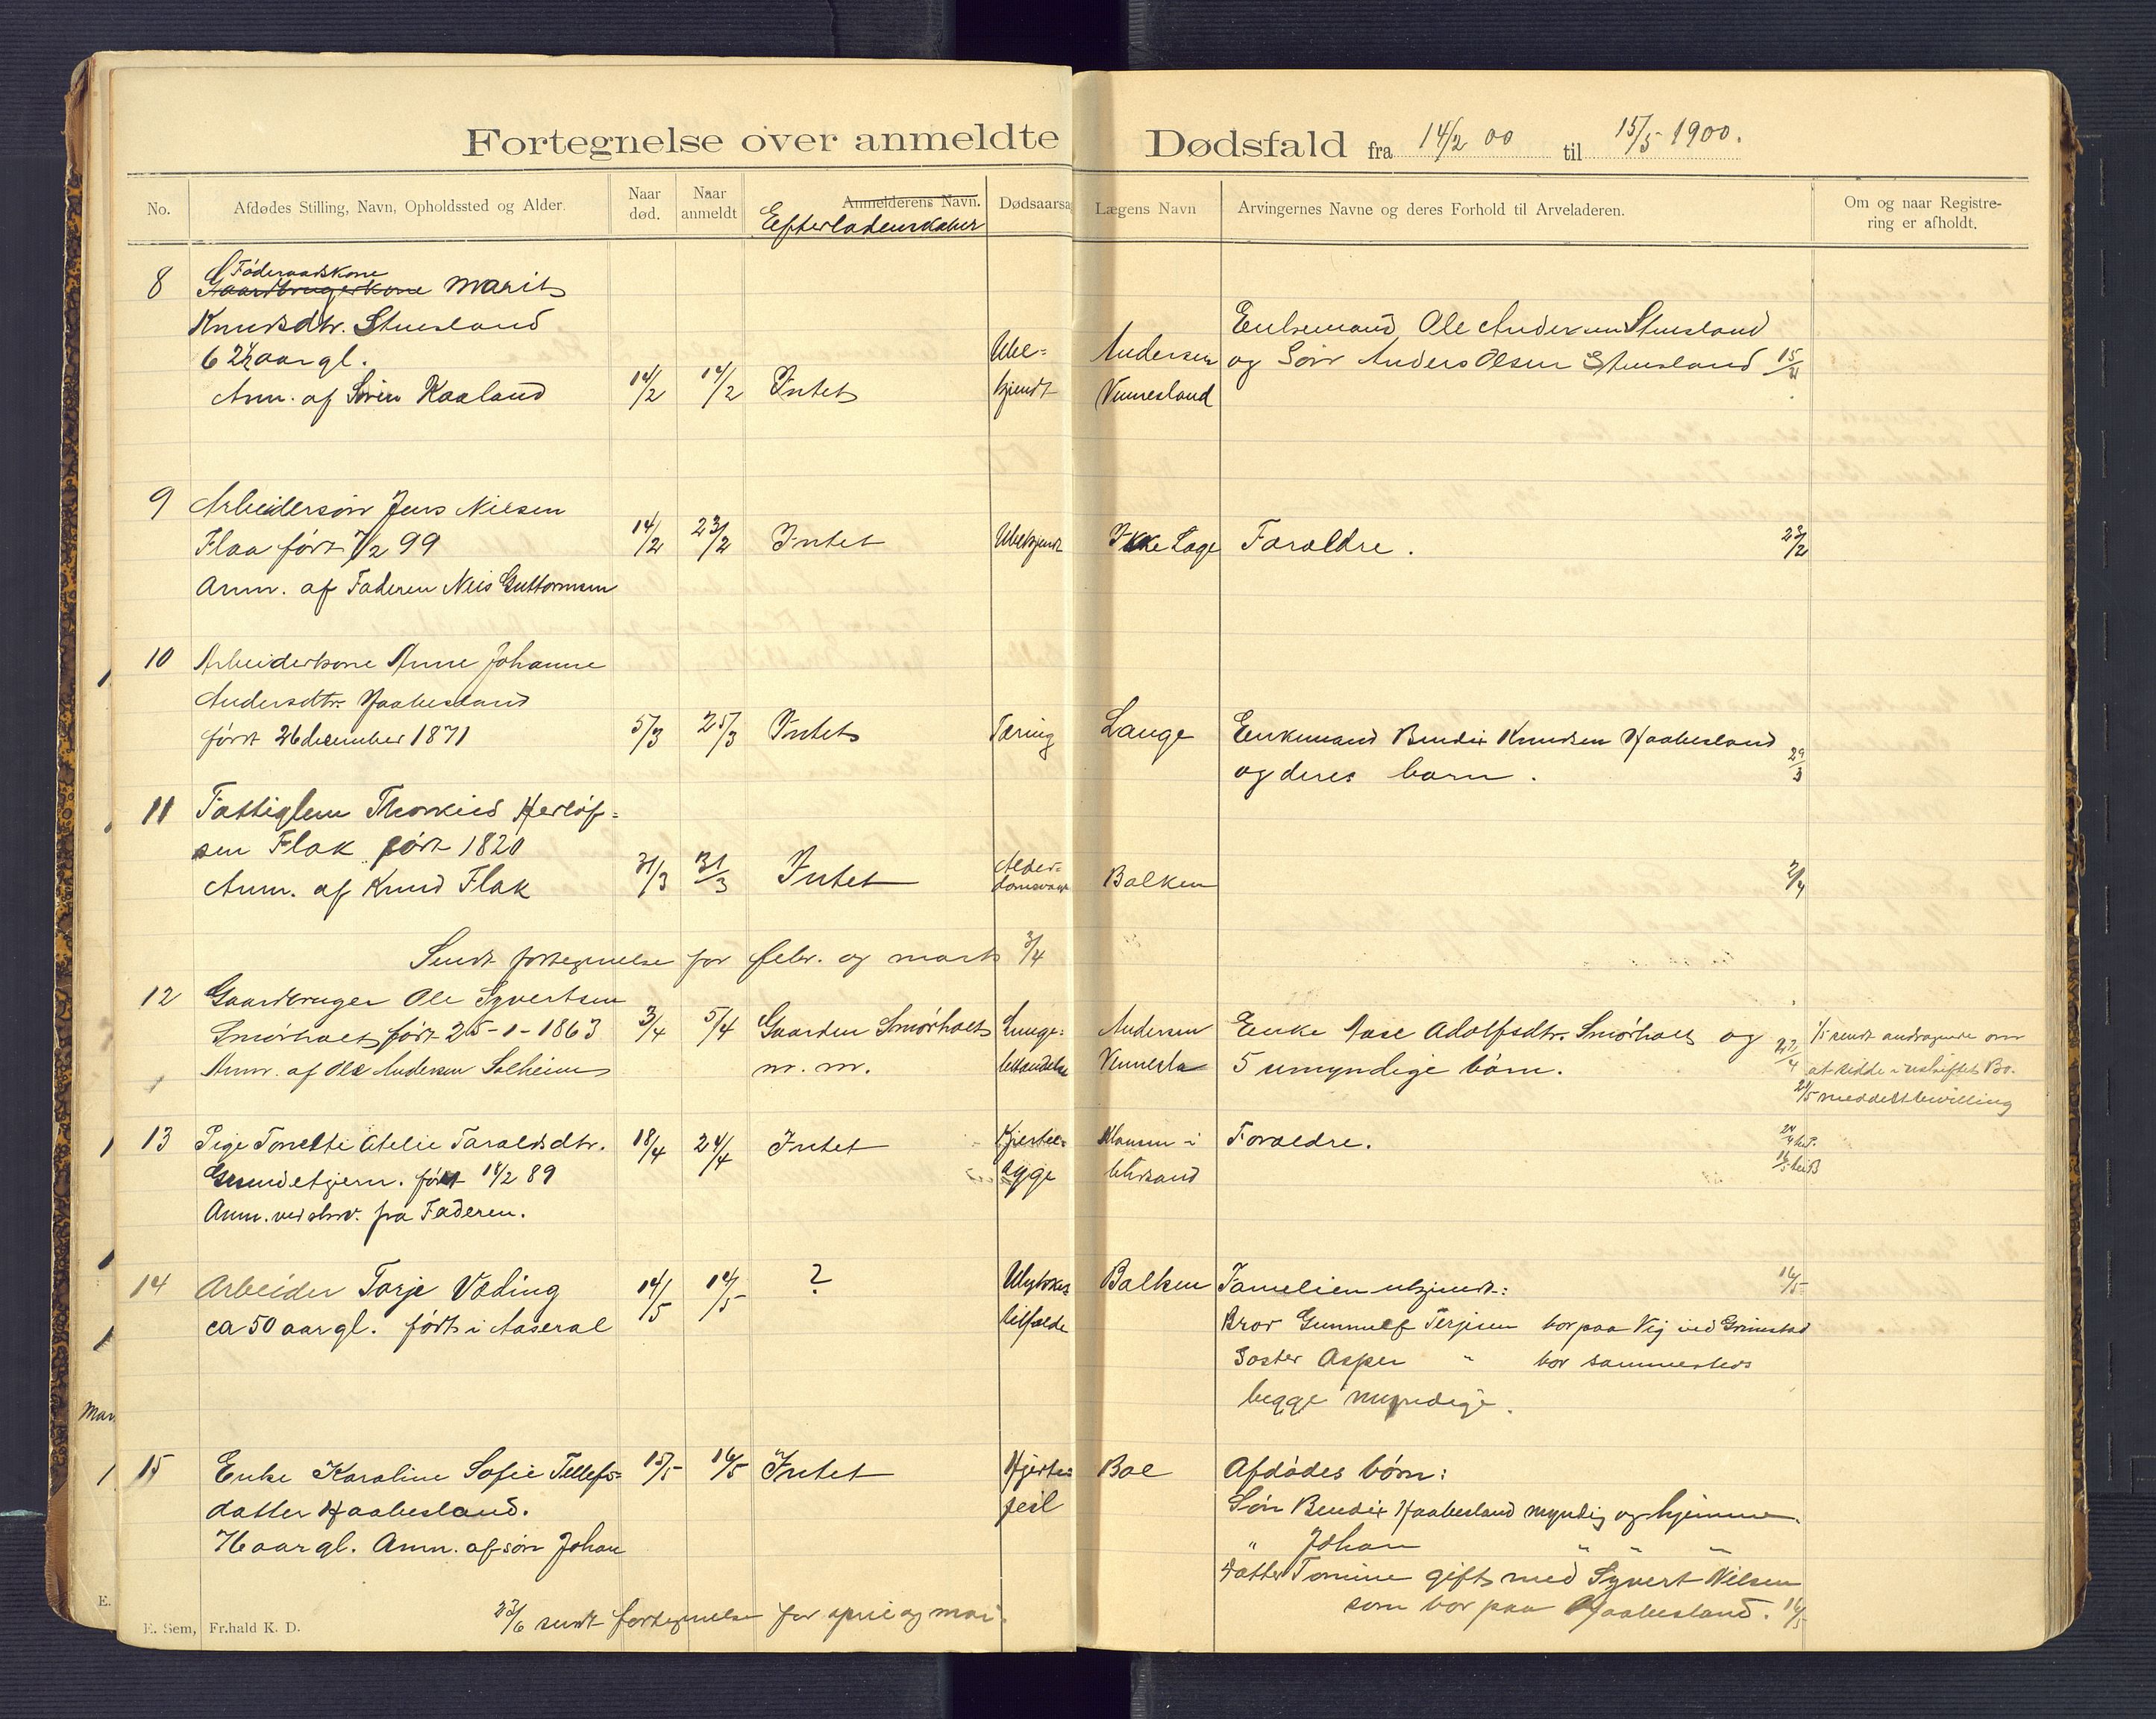 Fortegnelse over anmeldte Dødsfald fra 14/2 00 til 15/5 1900.
No. Afdødes Stilling, Navn, Opholdssted og Alder. Naar død. Naar anmeldt Anmelderens Navn. Efterladenskaber Dødsaarsa Lægens Navn Arvingernes Navne og deres Forhold til Arveladeren. Om og naar Registrering er afholdt.
Føderaadskone
8 Gaardbrugerkone Marit
Knudsdtr. Stuesland Enkemand Ole Andersen Stuesland
62½ aar gl. Ube= Andersen og Søn Anders Olsen Stuesland 15/2
Anm. af Søren Kaaland 14/2 14/2 Intet kjendt Vennesland
9 Arbeidersøn Jens Nilsen
Flaa født 7/2 99 14/2 23/2 Intet Ubekjendt Ikke Læge Forældre. 23/2
Anm. af Faderen Nils Guttormsen
10 Arbeiderkone Anne Johanne
Andersdtr. Haabesland
født 26 december 1871 5/3 25/3 Intet Tæring Lange Enkemand Bendix Knudsen Haabesland 29/3
og deres barn.
11 Fattiglem Thorkild Herløf=
sen Flak født 1820
Anm. af Knud Flak 31/3 31/3 Intet Alder= domsvag Balken 2/4
Sendt fortegnelse for febr. og marts 3/4
12 Gaardbruger Ole Syvertsen
Smørholt født 25-1-1863 3/4 5/4 Gaarden Smørholt Lunge= Andersen Enke Aase Adolfsdtr. Smørholt og 1/5 sendt andragende om
Anm. af Ole Andersen Solheim m. m. betændelse Vennesla 5 umyndige børn. at sidde i uskiftet Bo.
21/5 meddelt bevilling
13 Pige Tonette Atelie Taraldsdtr. 18/4 24/4 Intet Kjertel= i Forældre.
Grundetjern. født 14/2 89 syge
Anm. ved skriv. fra Faderen.
14 Arbeider Tarje Væding 14/5 14/5 ? Ulykkes Balken Familien ubkjendt: 16/5
ca 50 aar gl. født i Aaseral tilfælde Bror Gunnulf Terjesen bor paa Vig ved Grimstad
Søster Asper " bor sammesteds
begge myndige.
15 Enke Karoline Sofie Tellefs= 15/5 16/5 Intet Hjerte= Boe Afdødes børn:
datter Haabesland. feil Søn Bendix Haabesland myndig og hjemme.
76 aar gl. Anm. af søn Johan " Johan " " "
Datter Tomine gift med Syvert Nilsen
23/6 sendt fortegnelse for april og mai. som bor paa Haabesland. 16/5
E. Sem, Fr.hald K. D.